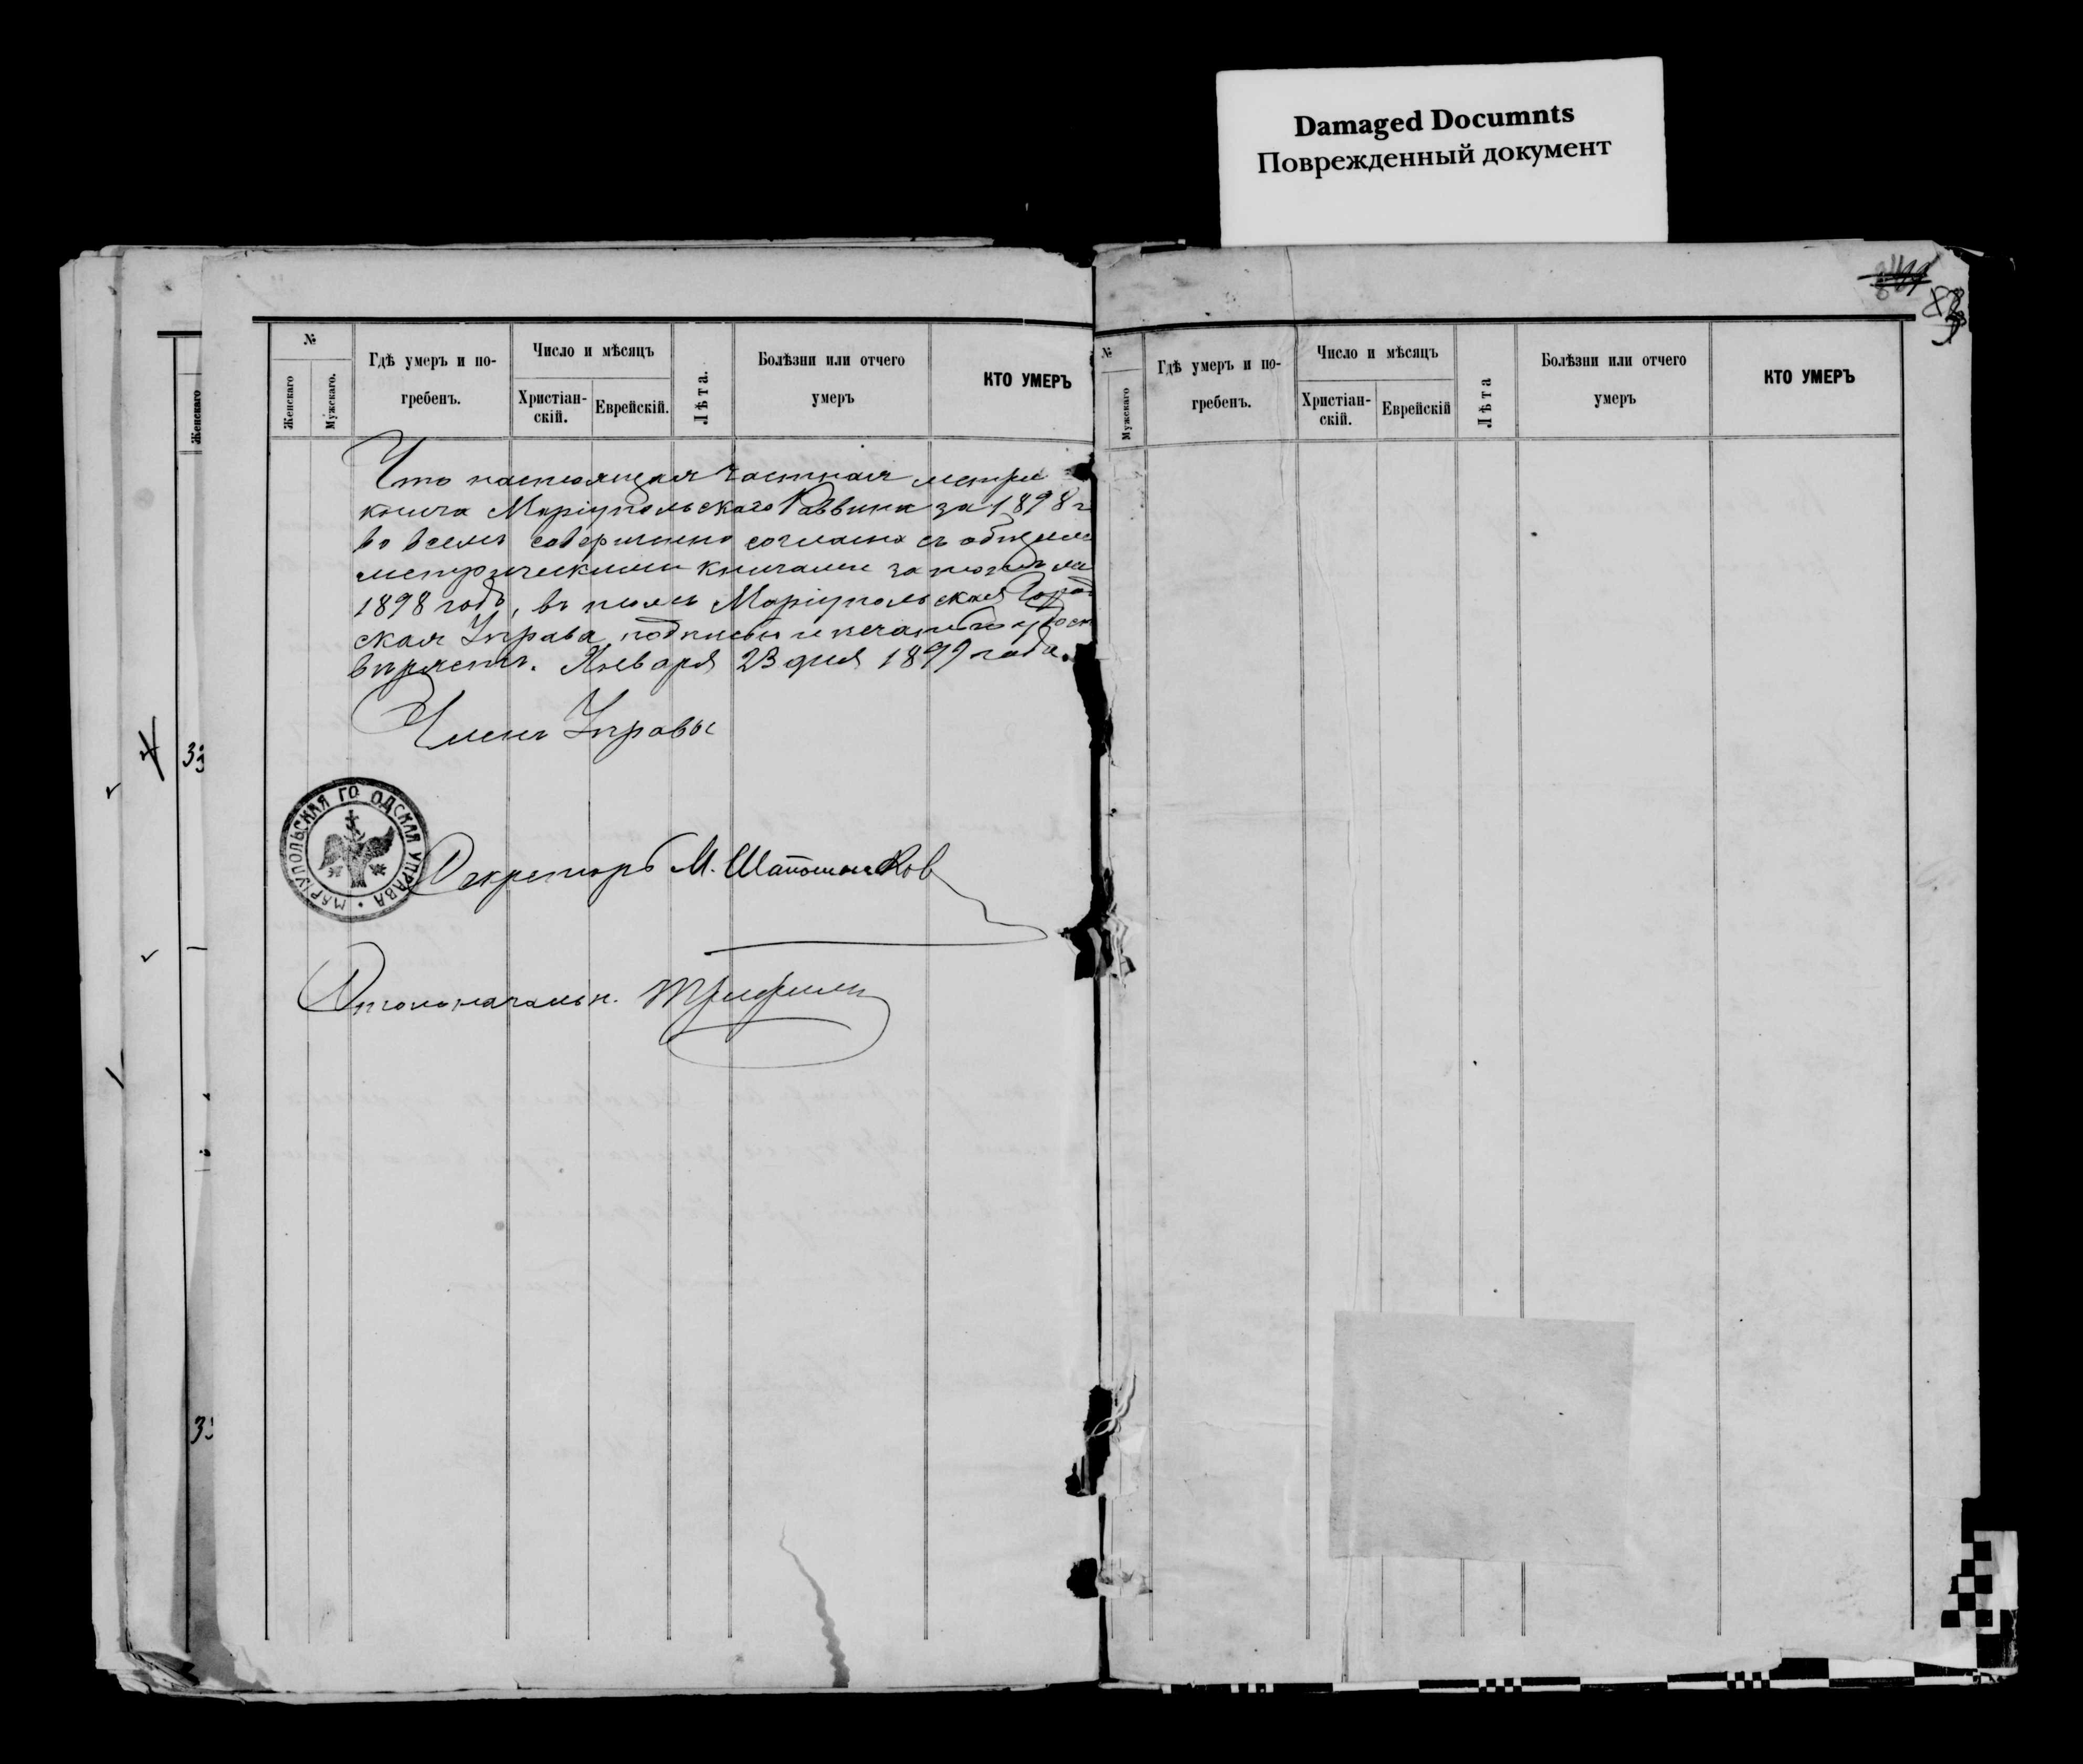 Damaged Documnts
Поврежденный документ
Женскаго
33
33
№
Женскаго
Мужскаго.
Гдѣ умеръ и по-
гребенъ.
Число и мѣсяцъ
Христіан-
скій.
Еврейскій.
Лѣта.
Болѣзни или отчего
умеръ
КТО УМЕРЪ
Что настоящая частная метри
книга Маріупольскаго Раввина за 1898 г
во всемъ совершенно согласна съ общими
метрическими книгами за тотъ же
1898 годъ, въ томъ Маріупольская Город
ская Управа подписью и печатью удосто
вѣряетъ. Января 23 дня 1899 года.
Членъ Управы
МАРІУПОЛЬСКАЯ ГО ОДСКАЯ УПРАВА
Секретарь М. Шапошников
Столоначальн.
№
Мужскаго
Гдѣ умеръ и по-
гребенъ.
Число и мѣсяцъ
Христіан-
скій.
Еврейскій
Лѣта
Болѣзни или отчего
умеръ
КТО УМЕРЪ